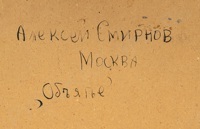 Алексей Смирнов
Москва
„Объятье"